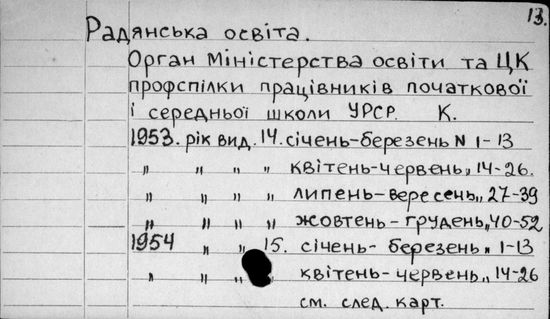 13.
Радянська освіта.
Орган Міністерства освіти та ЦК
профспілки працівників початкової
і середньої школи УРСР. К.
1953. рік вид. 14. січень-березень N 1-13
„ „ „ „ квітень-червень „ 14-26.
„ „ „ „ липень-вересень „ 27-39
„ „ „ „ жовтень-грудень „ 40-52
1954 „ „ 15. січень-березень „ 1-13
„ „ „ „ квітень-червень „ 14-26
см. след. карт.